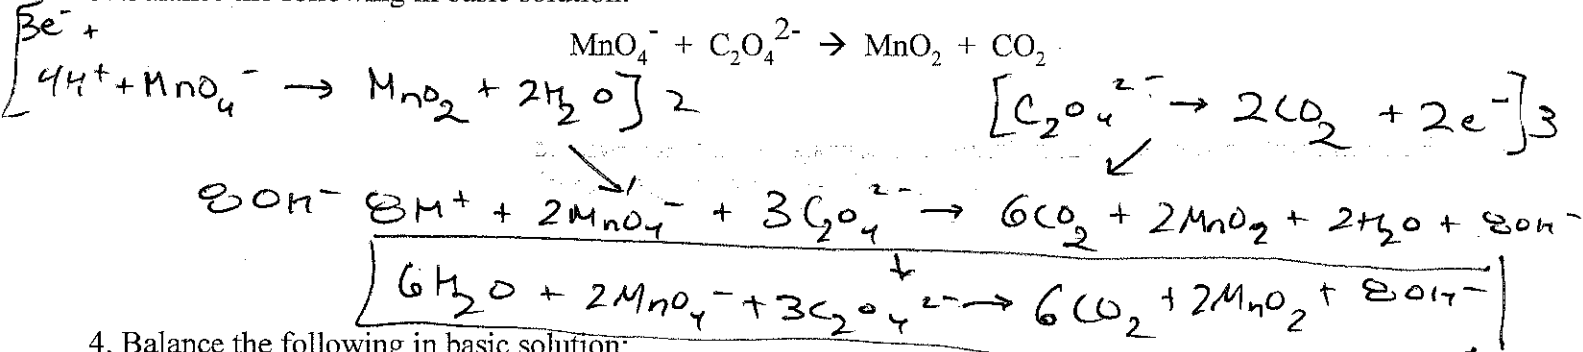 MnO₄⁻ + C₂O₄²⁻ → MnO₂ + CO₂
[3e⁻ +
4H⁺ + MnO₄⁻ → MnO₂ + 2H₂O] 2
[C₂O₄²⁻ → 2CO₂ + 2e⁻] 3
8OH⁻ 8H⁺ + 2MnO₄⁻ + 3C₂O₄²⁻ → 6CO₂ + 2MnO₂ + 2H₂O + 8OH⁻
6H₂O + 2MnO₄⁻ + 3C₂O₄²⁻ → 6CO₂ + 2MnO₂ + 8OH⁻
4. Balance the following in basic solution: